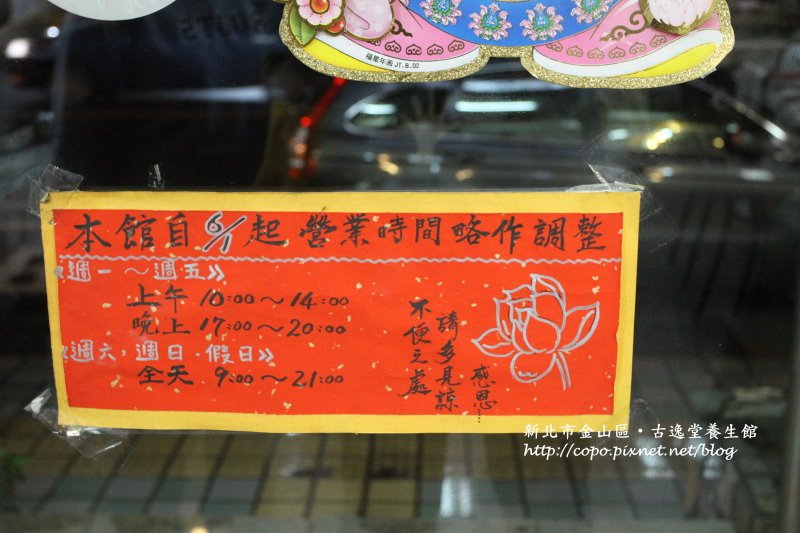 福龍年画 J1.B.02
本館自6/1起營業時間略作調整
《週一～週五》
上午 10:00～14:00
晚上 17:00～20:00
《週六.週日.假日》
全天 9:00～21:00
不便之處
請多見諒
感恩...
新北市金山區・古逸堂養生館
http://copo.pixnet.net/blog